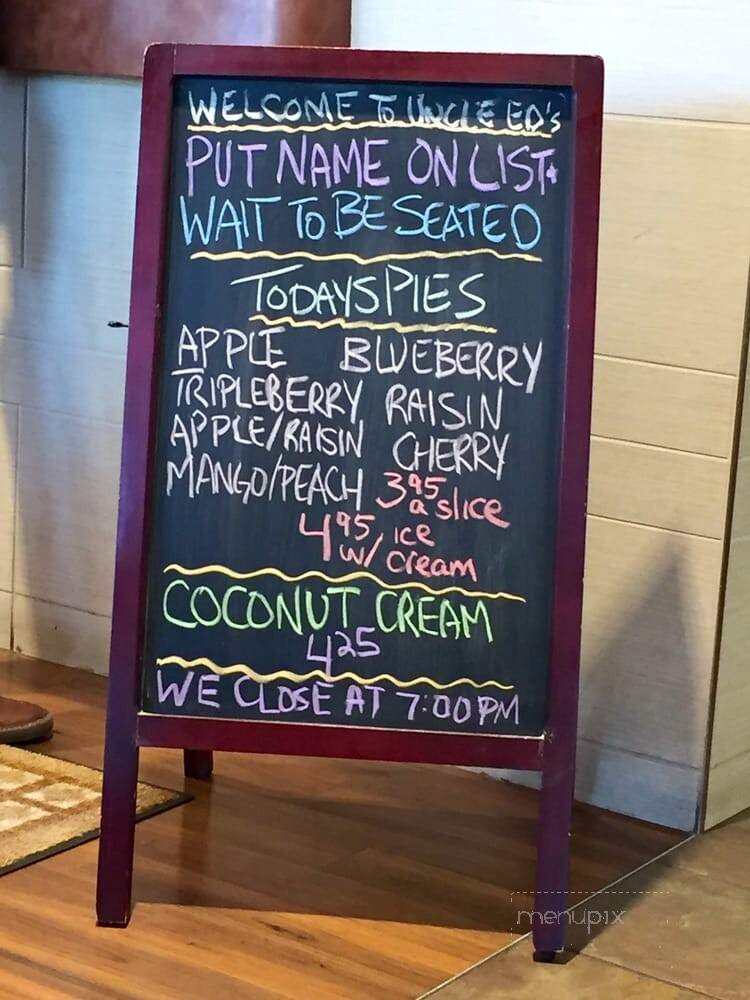 WELCOME TO UNCLE ED's
PUT NAME ON LIST &
WAIT TO BE SEATED
TODAYS PIES
APPLE BLUEBERRY
TRIPLEBERRY RAISIN
APPLE/RAISIN CHERRY
MANGO/PEACH 3.95 a slice
4.95 w/ ice cream
COCONUT CREAM
4.25
WE CLOSE AT 7:00 PM
menupix